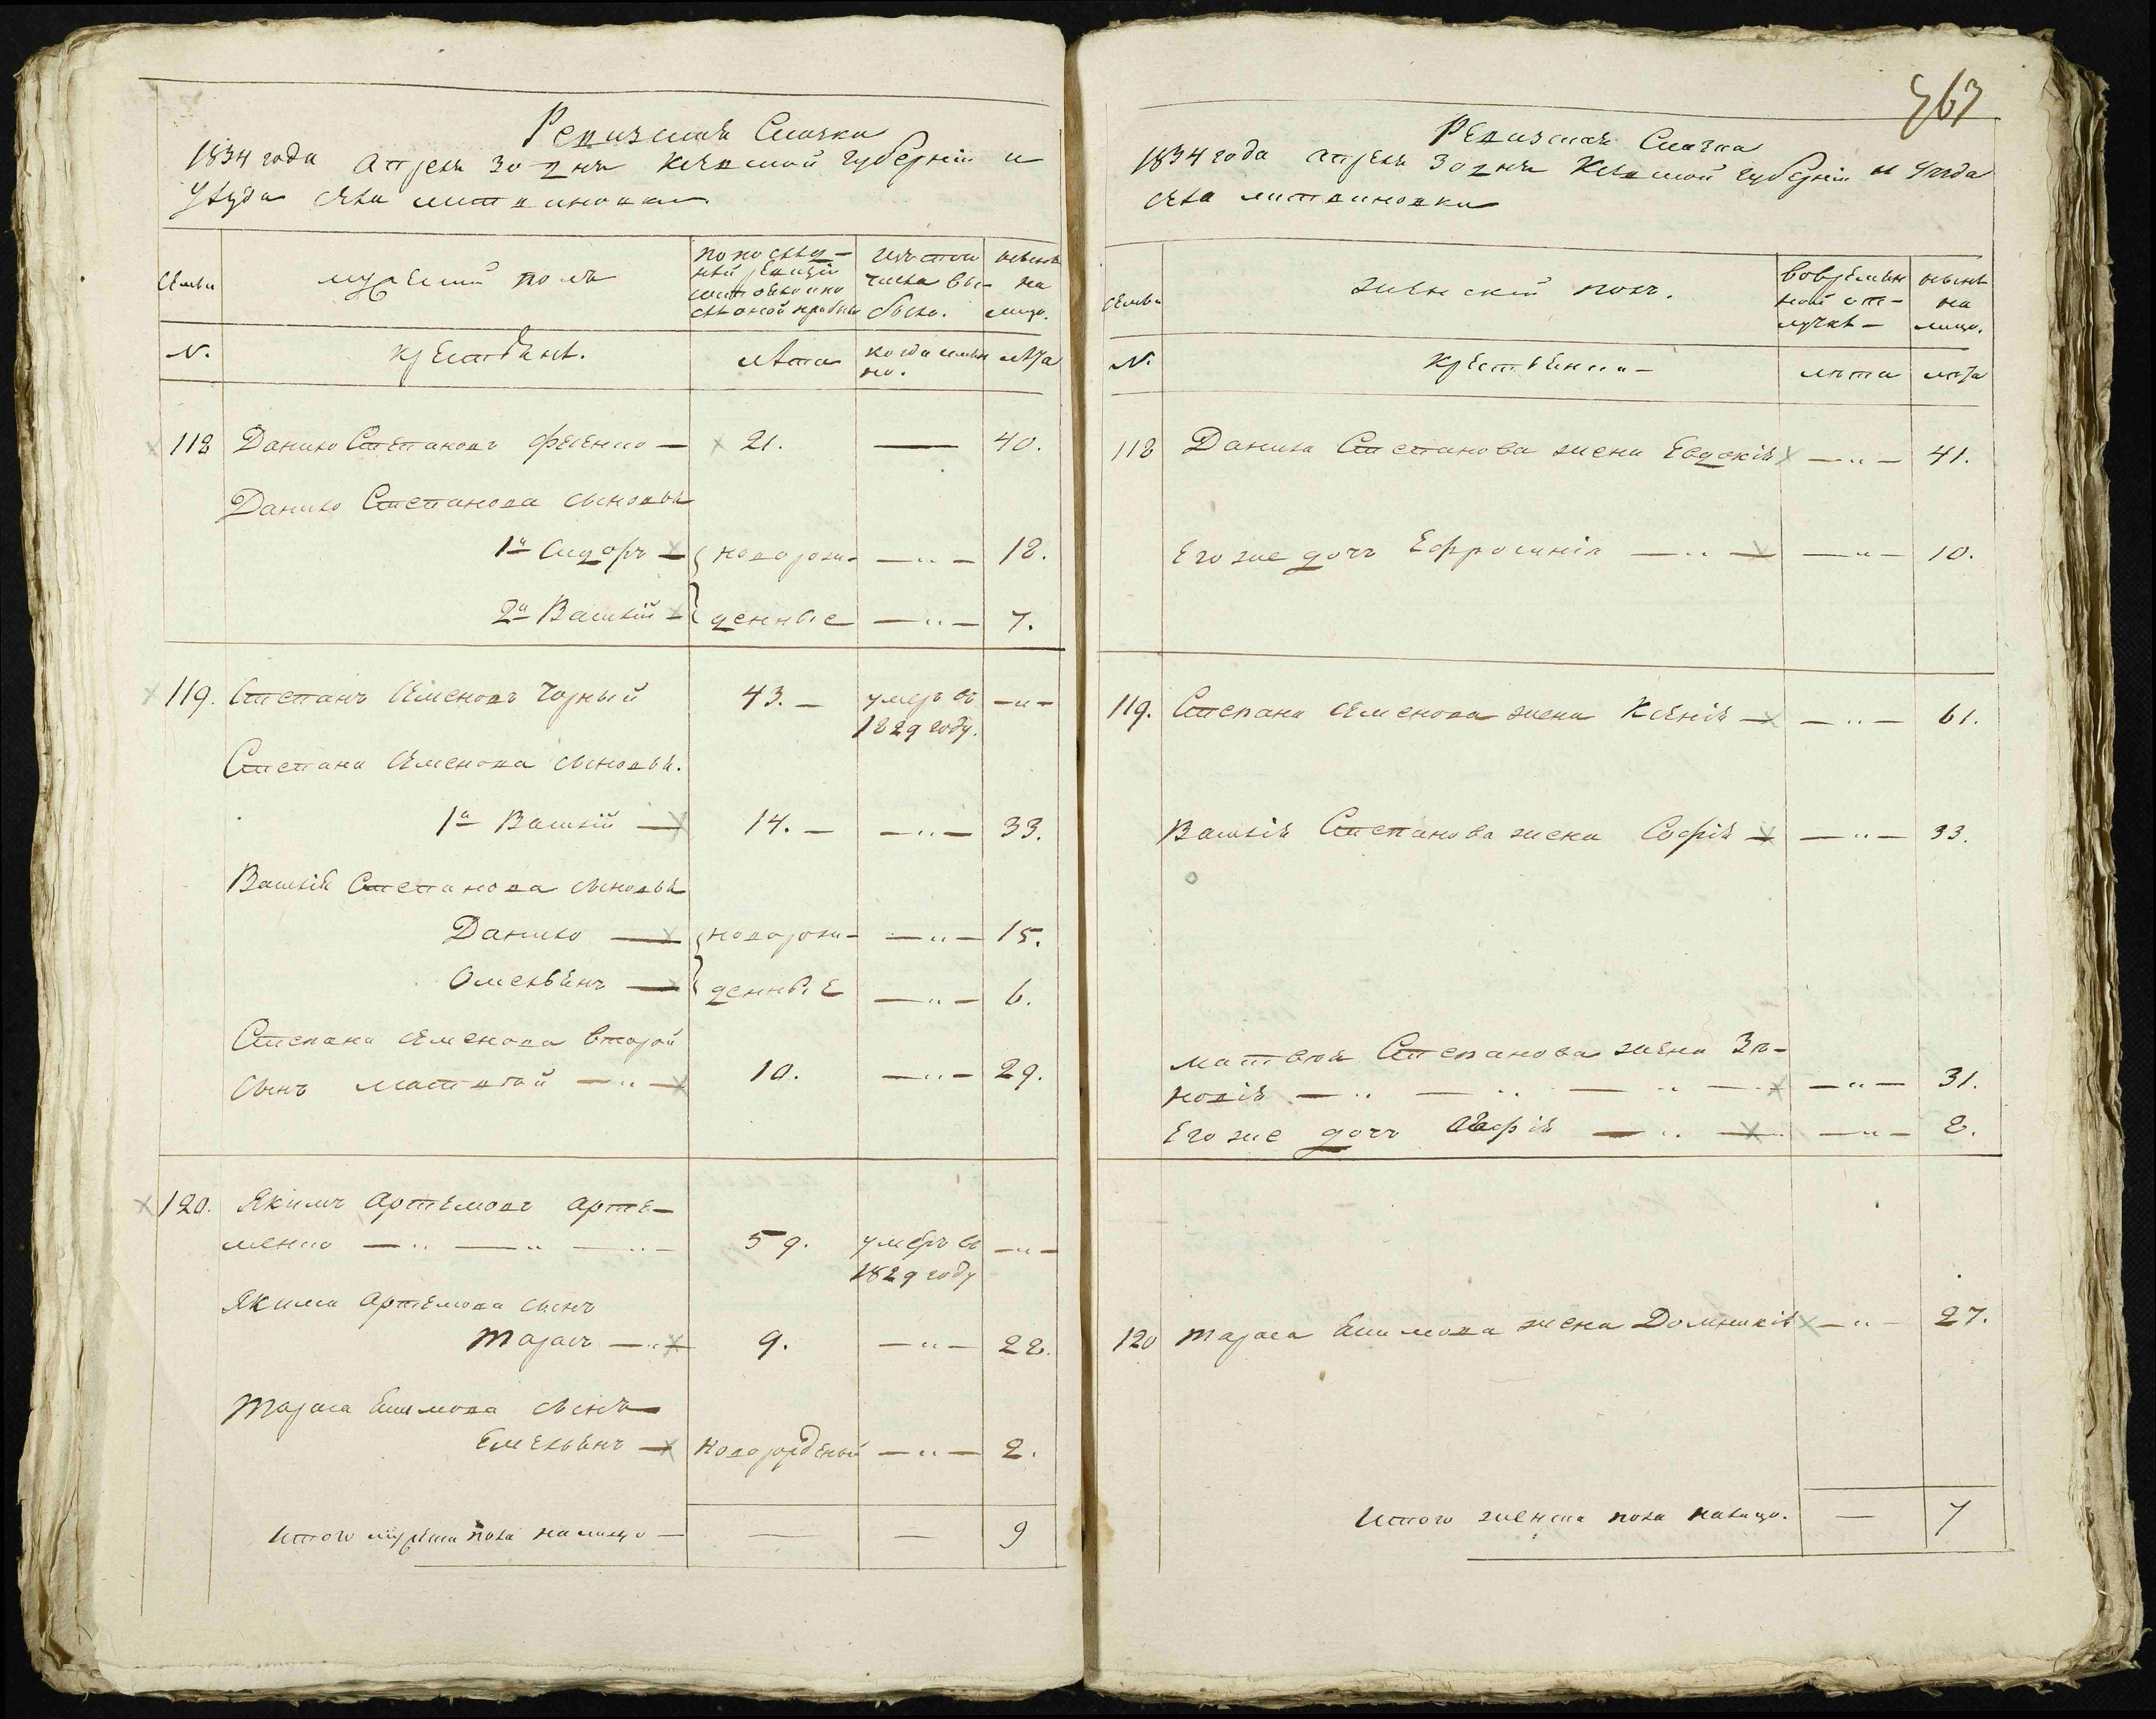 Ревизская Сказка
1834 года Апреля 30 дня Киевской губернии и
Уезда села Литвиновки
Семьи
мужеский полъ
по послед-
ней ревизіи
состояло и по
сле оной прибыло
Изъ того
числа вы-
было.
ныне
на
лицо.
N.
крестьяне.
лета
когда имян
но.
лета
118 Данило Степановъ Фесенко — 21. — 40.
Данило Степанова сыновья
1й Сидоръ — новорож- — „ — 12.
2й Василій — денные — „ — 7.
119. Степанъ Семеновъ Чорный 43. — умеръ въ — „ —
1829 году.
Степана Семенова сыновья.
1й Василій — 14. — — „ — 33.
Василія Степанова сыновья
Данило — новорож- — „ — 15.
Омельянъ — денные — „ — 6.
Степана Семенова второй
сынъ Матвей — „ — 10. — „ — 29.
120. Якимъ Артемовъ Арте-
менко — „ — „ — „ — 59. умеръ въ — „ —
1829 году
Якима Артемова сынъ
Тарасъ — „ — 9. — „ — 28.
Тараса Екимова сынъ
Емельянъ — новорожденый — „ — 2.
Итого мужеска пола налицо — — — 9
363
Ревизская Сказка
1834 года апреля 30 дня Киевской губерніи и Уезда
села Литвиновки
Семьи
женскій полъ.
во времен
ной от-
лучке —
ныне
на
лицо.
N.
крестьянки —
лета
лета
118 Данила Степанова жена Евдокія — „ — 41.
Его же дочь Ефросинія — „ — — „ — 10.
119. Степана Семенова жена Ксенія — — „ — 61.
Василія Степанова жена Софія — — „ — 33.
Матвея Степанова жена Зе-
новія — „ — „ — „ — — „ — 31.
Его же дочь Софія — „ — — „ — 2.
120 Тараса Екимова жена Домникія — „ — 27.
Итого женска пола налицо. — 7